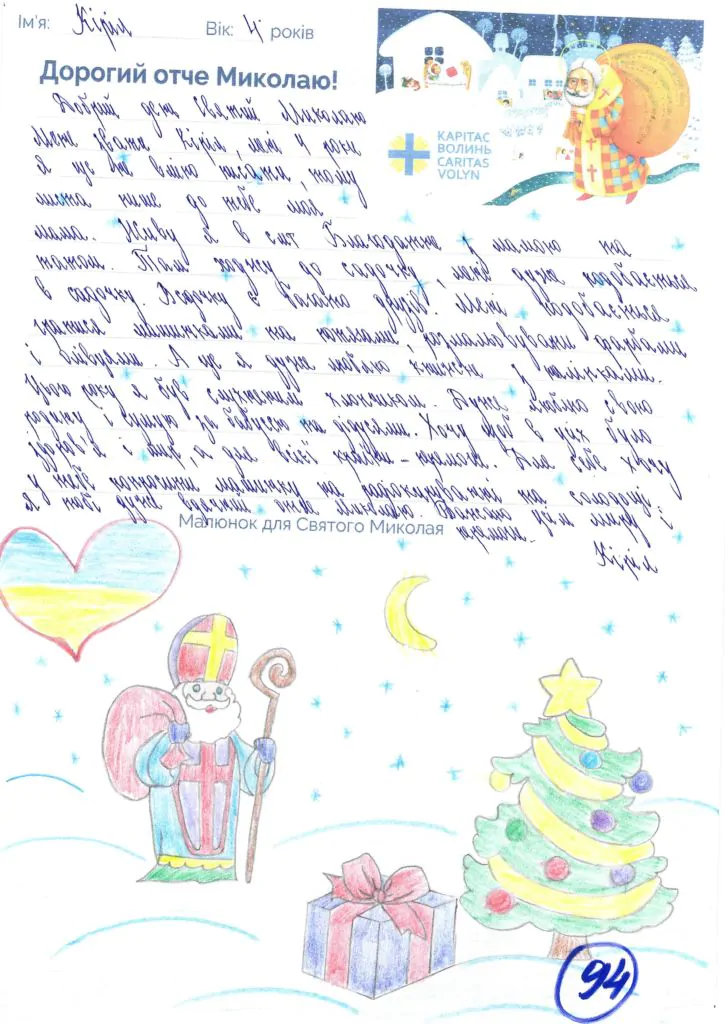 Ім'я: Кіріл Вік: 4 років
Дорогий отче Миколаю!
КАРІТАС
ВОЛИНЬ
CARITAS
VOLYN
Добрий день святий Миколаю
Мене звати Кіріл, мені 4 роки
я ще не вмію писати, тому
листа пише до тебе моя
мама. Живу я в смт Благодатне з мамою та
татом. Там ходжу до садочку, мені дуже подобається
в садочку. В садочку є багато друзів. Мені подобається
гратися машинками та юлками, розмальовувати фарбами
і олівцями. А ще я дуже люблю книжки з наліпками.
Цього року я був слухняним хлопчиком. Дуже люблю свою
родину і сумую за бабусею та дідусями. Хочу щоб в усіх було
здоров'я і мир, а для всієї країни - перемоги. Для себе хочу
у тебе попросити машинку на радіокеруванні та солодощі.
я тобі дуже вдячний отче Миколаю. Бажаю всім миру і
перемоги.
Кіріл
Малюнок для Святого Миколая
94